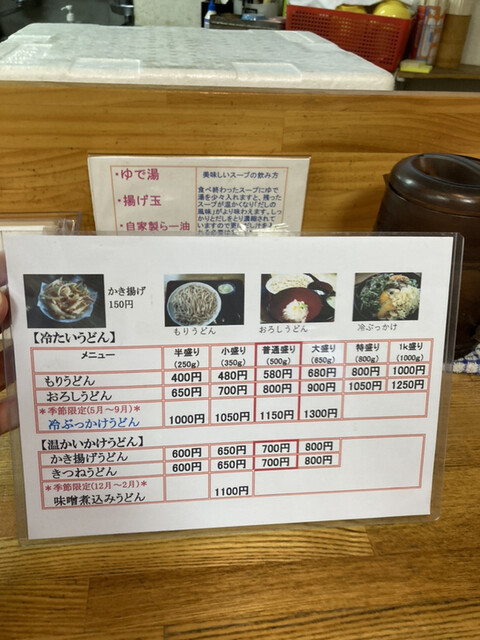 ・ゆで湯
・揚げ玉
・自家製らー油
美味しいスープの飲み方
食べ終わったスープにゆで
湯を少々入れますと、残った
スープが温かくなり「だしの
風味」がより味わえます。しっ
かりとだしをとり濃縮されて
かき揚げ
150円
もりうどん
おろしうどん
冷ぶっかけ
【冷たいうどん】
メニュー 半盛り(250g) 小盛り(350g) 普通盛り(500g) 大盛り(650g) 特盛り(800g) 1k盛り(1000g)
もりうどん 400円 480円 580円 680円 800円 1000円
おろしうどん 650円 700円 800円 900円 1050円 1250円
＊季節限定(5月～9月)＊
冷ぶっかけうどん 1000円 1050円 1150円 1300円
【温かいかけうどん】
かき揚げうどん 600円 650円 700円 800円
きつねうどん 600円 650円 700円 800円
＊季節限定(12月～2月)＊
味噌煮込みうどん 1100円